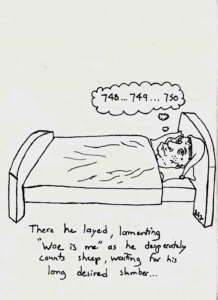 748... 749... 750
There he layed, lamenting
"Woe is me" as he desperately
counts sheep, waiting for his
long desired slumber...